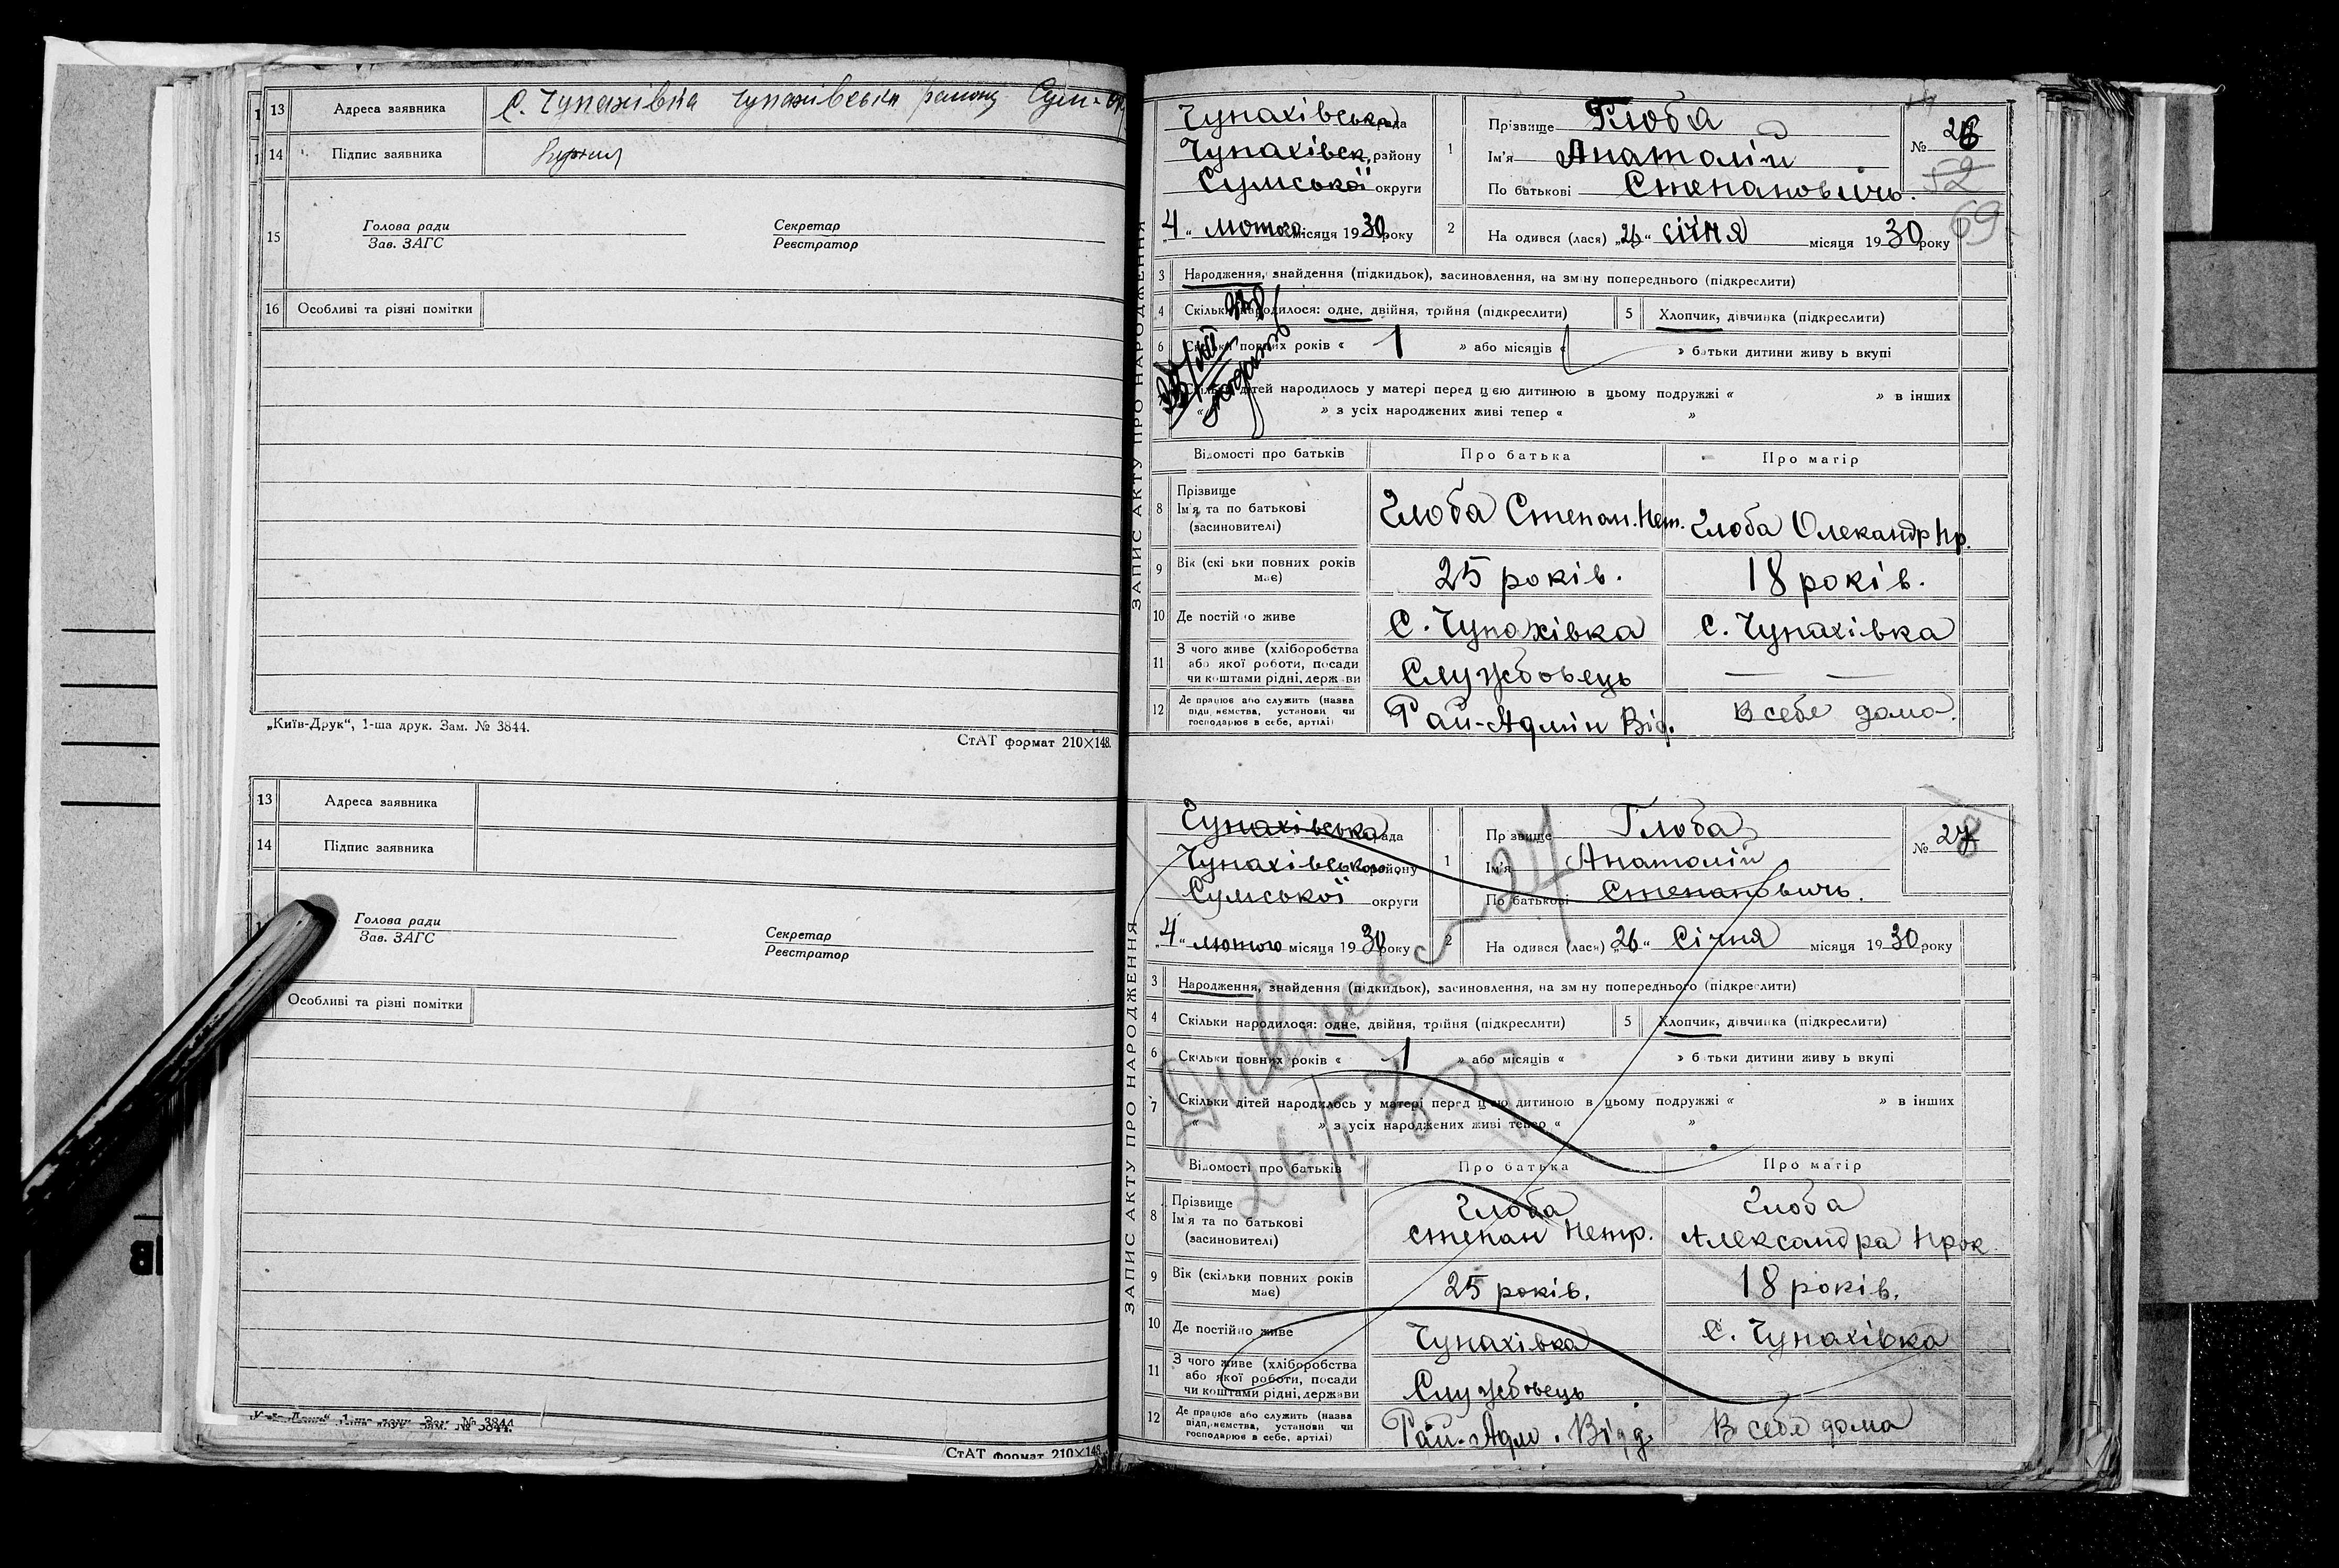 13 Адреса заявника С. Чупахівка Чупахівська району Сум. ок
14 Підпис заявника
15 Голова ради Секретар
Зав. ЗАГС Реєстратор
16 Особливі та різні помітки
„Київ-Друк“, 1-ша друк. Зам. № 3844.
СтАТ формат 210×148.
13 Адреса заявника
14 Підпис заявника
Голова ради Секретар
Зав. ЗАГС Реєстратор
Особливі та різні помітки
СтАТ формат 210×148
ЗАПИС АКТУ ПРО НАРОДЖЕННЯ
Чупахівська рада
Чупахівськ. району
Сумської округи
„4“ лютого місяця 1930 року
1 Прізвище Глоба
Ім'я Анатолій
По батькові Степановичь.
№ 26
52
69
2 На одився (лася) „26“ січня місяця 1930 року
3 Народження, знайдення (підкидьок), засиновлення, на зміну попереднього (підкреслити)
4 Скільки народилося: одне, двійня, трійня (підкреслити) 5 Хлопчик, дівчинка (підкреслити)
6 Скільки повних років « 1 » або місяців « » батьки дитини живу ь вкупі
Скільки дітей народилось у матері перед цією дитиною в цьому подружжі « » в інших
« » з усіх народжених живі тепер « »
Відомості про батьків Про батька Про матір
8 Прізвище
Ім'я та по батькові
(засиновителі)
Глоба Степан. Пет. Глоба Олександр Пр.
9 Вік (скі ьки повних років має) 25 років. 18 років.
10 Де постійно живе С. Чупахівка С. Чупахівка
11 З чого живе (хліборобства
або якої роботи, посади
чи коштами рідні, держави
Службовець — —
12 Де працює або служить (назва
підприємства, установи чи
господарює в себе, артілі)
Рай-Адмін Від. В себе дома.
ЗАПИС АКТУ ПРО НАРОДЖЕННЯ
Чупахівська рада
Чупахівського району
Сумської округи
„4“ лютого місяця 1930 року
1 Пр звище Глоба
Ім'я Анатолій
По батькові Степановичь.
№ 27
2 На одився (лася) „26“ Січня місяця 1930 року
3 Народження, знайдення (підкидьок), засиновлення, на зміну попереднього (підкреслити)
4 Скільки народилося: одне, двійня, трійня (підкреслити) 5 Хлопчик, дівчинка (підкреслити)
6 Скільки повних років « 1 » або місяців « » батьки дитини живу ь вкупі
7 Скільки дітей народилось у матері перед цією дитиною в цьому подружжі « » в інших
« » з усіх народжених живі тепер « »
Відомості про батьків Про батька Про матір
8 Прізвище
Ім'я та по батькові
(засиновителі)
Глоба Степан Петр. Глоба Александра Прок
9 Вік (скільки повних років має) 25 років. 18 років.
10 Де постійно живе Чупахівка С. Чупахівка
11 З чого живе (хліборобства
або якої роботи, посади
чи коштами рідні, держави
Службовець
12 Де працює або служить (назва
підприємства, установи чи
господарює в себе, артілі)
Рай. Адм. Відд. В себе дома